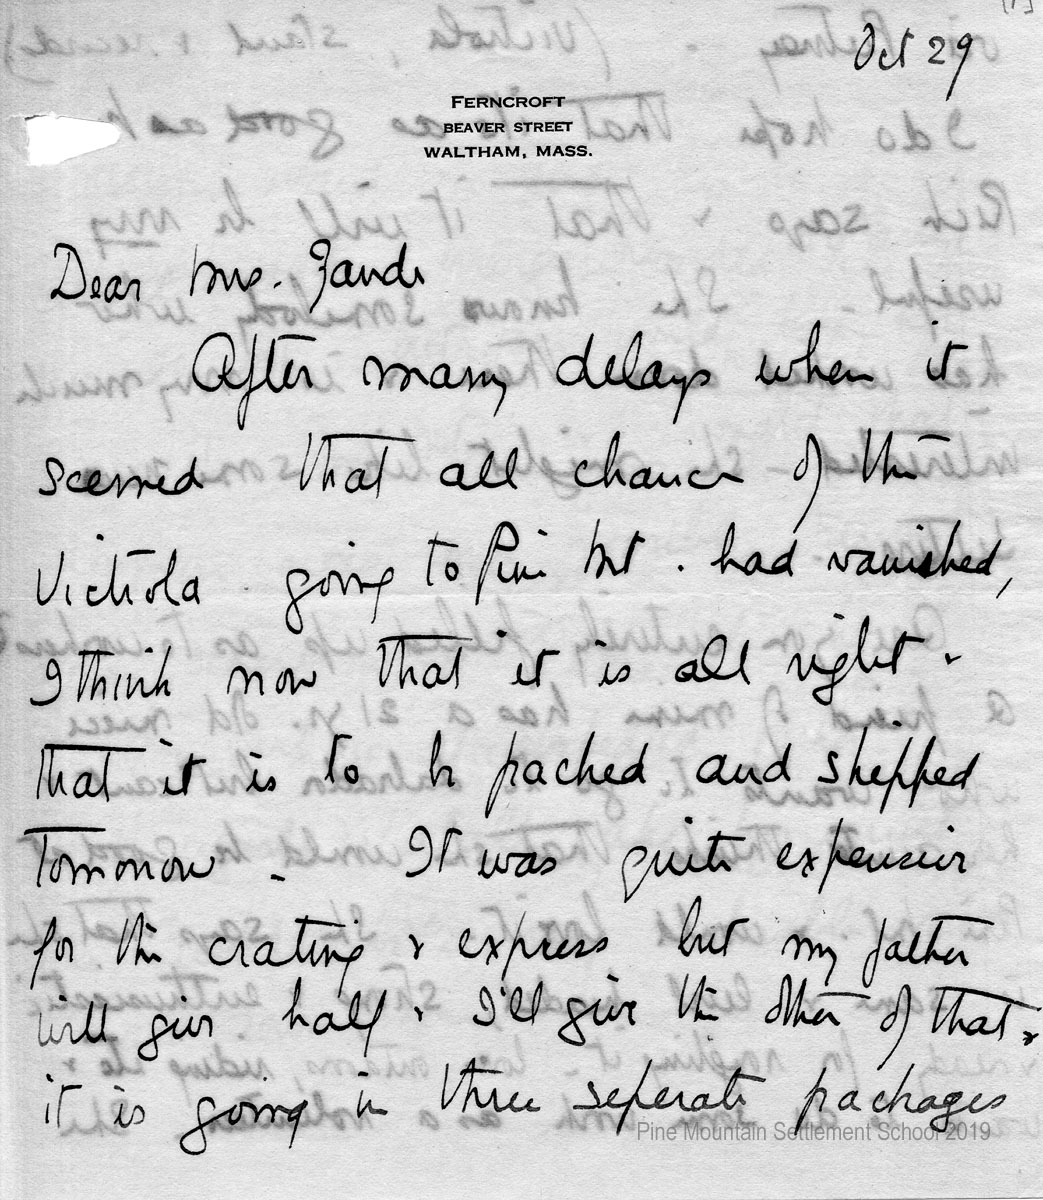 [1]
Oct 29
FERNCROFT
BEAVER STREET
WALTHAM, MASS.
Dear Mrs. Zande
After many delays when it
seemed that all chance of the
Victrola going to Pine Mt. had vanished,
I think now that it is all right &
that it is to be packed and shipped
tomorrow - It was quite expensive
for the crating & express but my father
will give half & I'll give the other of that &
it is going in three seperate packages
Pine Mountain Settlement School 2019